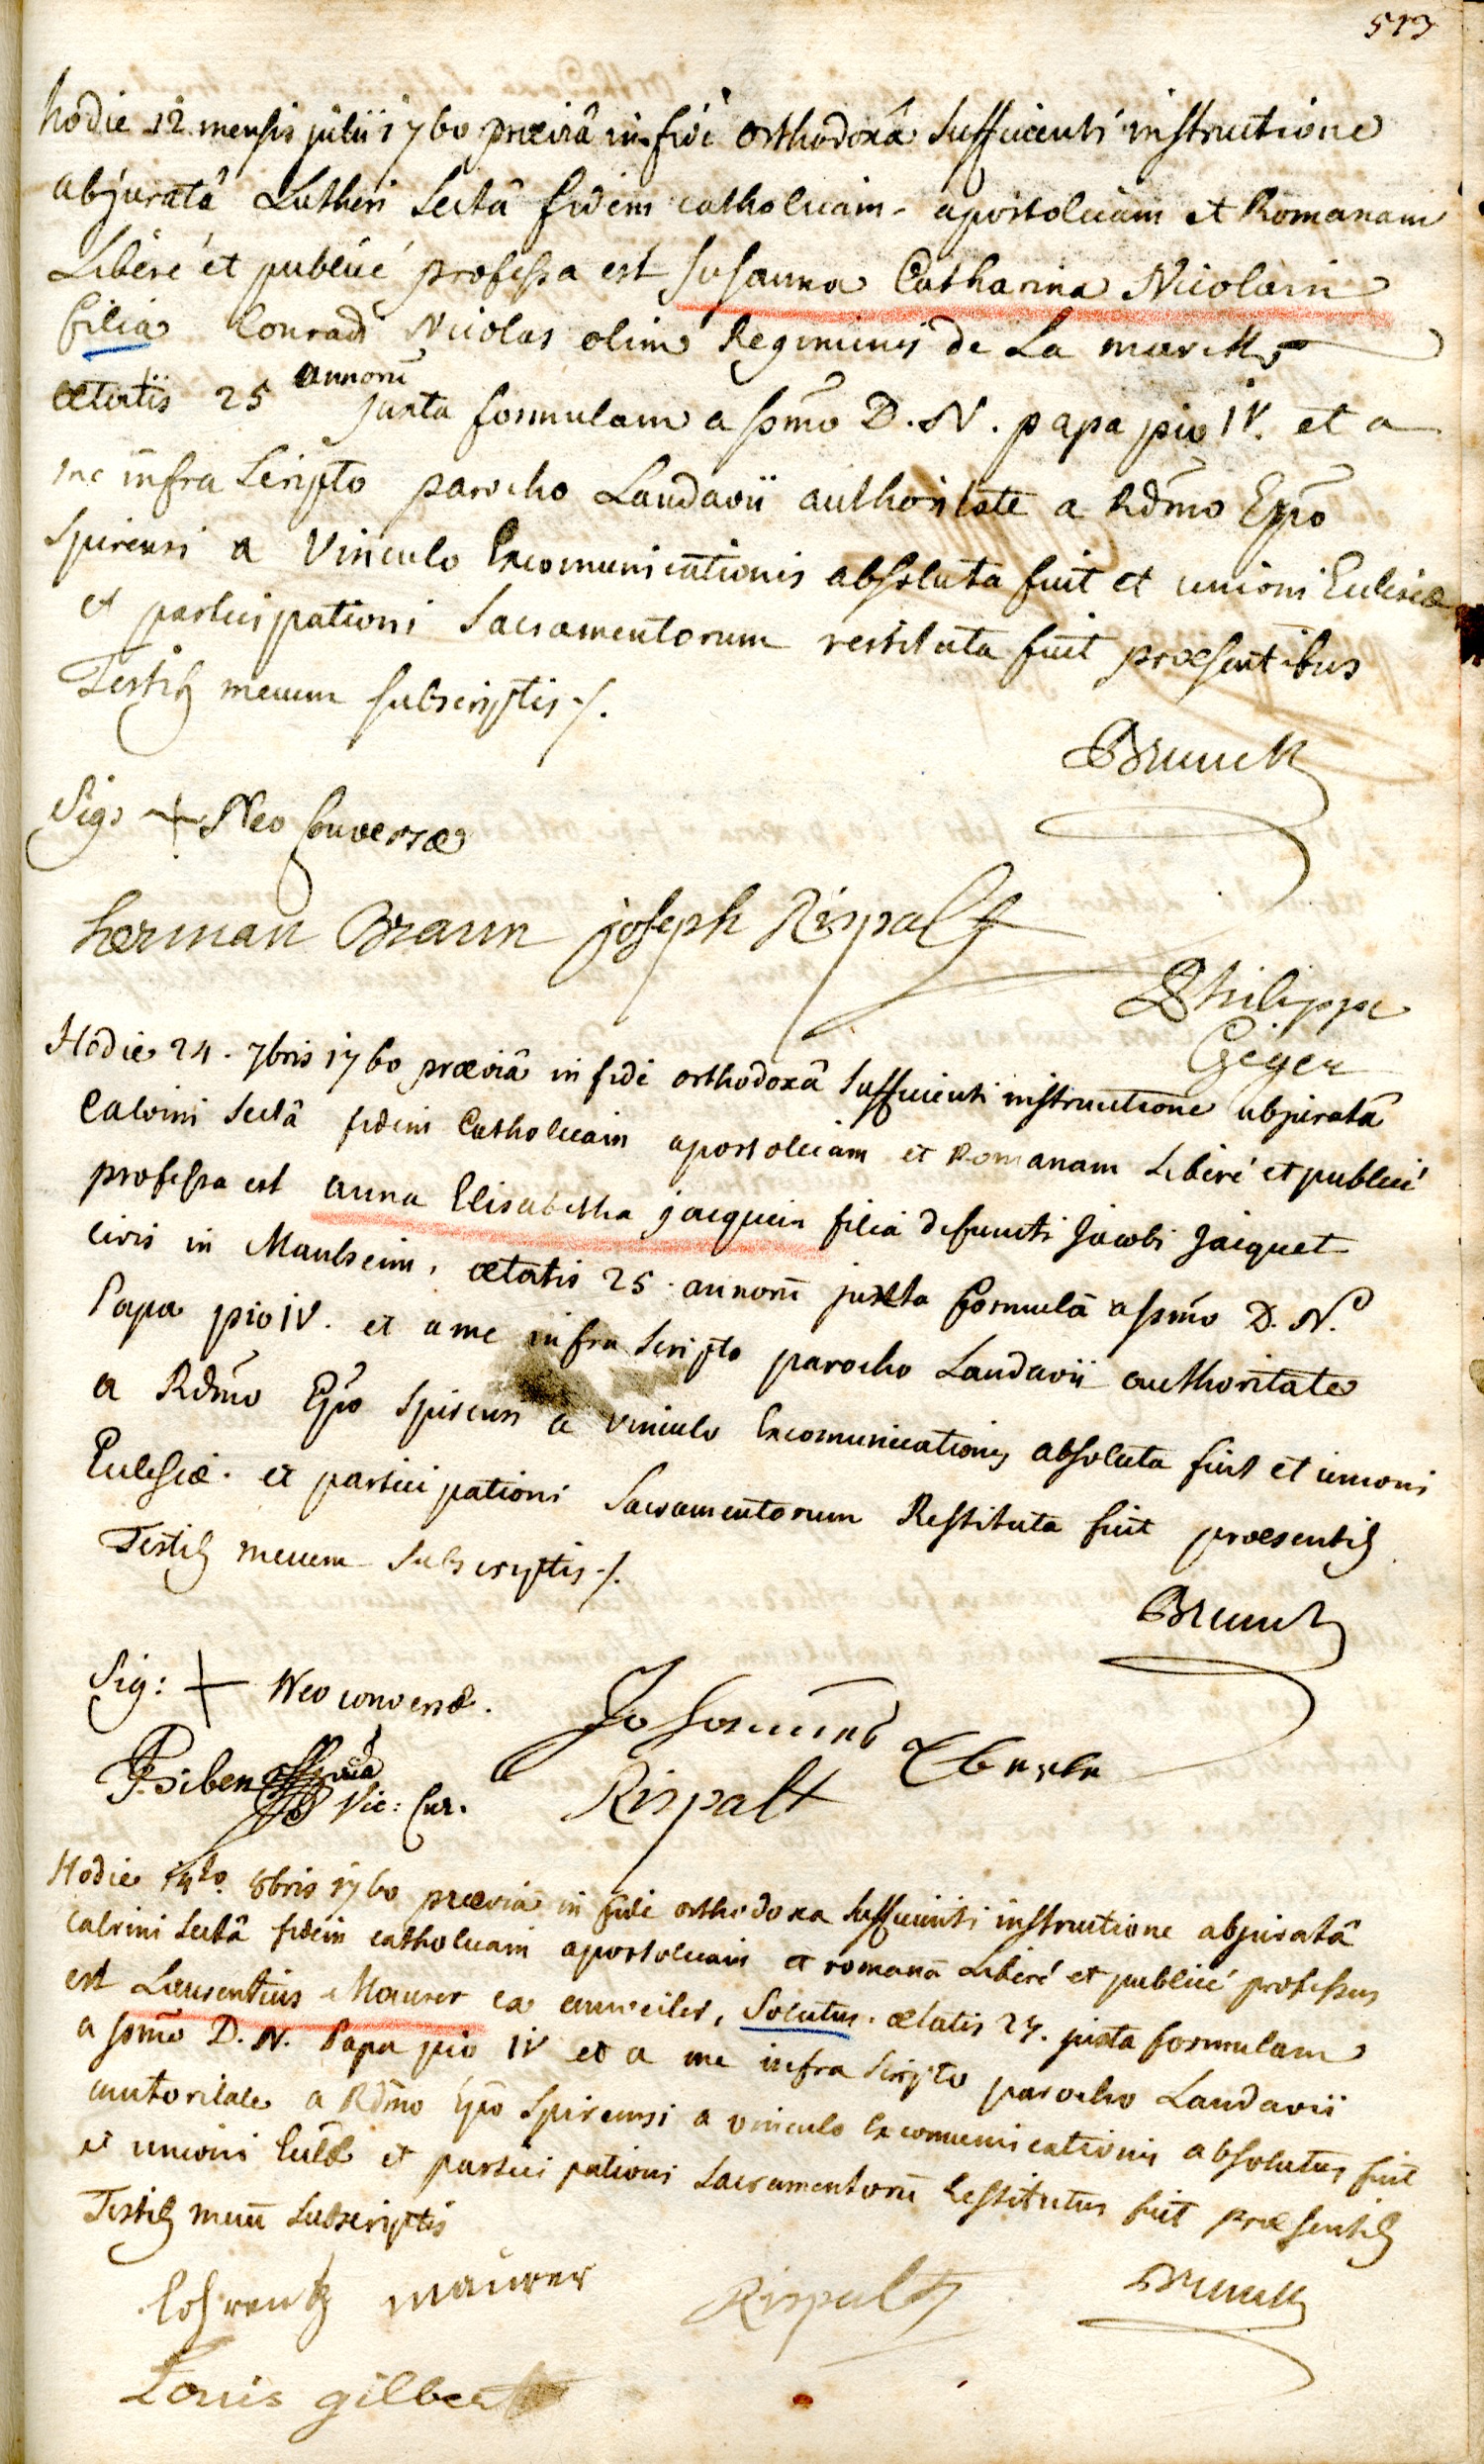 513
hodie 12. mensis julii 1760 præviâ in fide orthodoxâ sufficienti instructione
abjuratâ Lutheri sectâ fidem catholicam apostolicam et Romanam
Liberé et publicé professa est Susanna Catharina Nicolain
filia Conradi Nicolas olim Regiminis de La marck
annorū
ætatis 25 juxta formulam a ssmo D. N. papa pio IV. et a
me infra scripto parocho Landavii authoritate a Rdmo Epo
spirensi a vinculo Excomunicationis absoluta fuit et unioni Ecclesiæ
et participationi Sacramentorum restituta fuit præsentibus
Testib mecum subscriptis ./.
Brunck
Sig: + Neo Conversæ
herman Braun joseph Rispalt
Philippe
Geiger
Hodie 24. 7bris 1760 præviâ in fide orthodoxâ sufficienti instructione abjuratâ
Calvini sectâ fidem Catholicam apostolicam et Romanam Liberé et publicé
professa est anna Elisabetha jacquin filia defuncti Jacobi Jacquet
civis in Manheim, ætatis 25 annorū juxta formulā a ssmo D. N.
Papa pio IV. et a me infra scripto parocho Landavii authoritate
a Rdmo Epo Spirensi a vinculo Excomunicationis absoluta fuit et unioni
Ecclesiæ. et participationi Sacramentorum Restituta fuit præsentib
Testib mecum subscriptis ./.
Brunck
Sig: + Neo conversæ.
Johannes Eberle
Vic: Cur.
Rispalt
Hodie 14to 8bris 1760 prævia in fide orthodoxa sufficienti instructione abjuratâ
Calvini sectâ fidem catholicam apostolicam et romanā Liberé et publicé professus
est Laurentius Maurer ex anweiler, Solutus. ætatis 24. juxta formulam
a ssmo D. N. Papa pio IV et a me infra scripto parocho Landavii
autoritate a Rdmo Epo Spirensi a vinculo Excomunicationis absolutus fuit
et unioni Eccæ et participationi Sacramentorū Restitutus fuit præsentib
Testib mecū subscriptis
Lohrentz maurer Rispalt Brunck
Louis gilbert